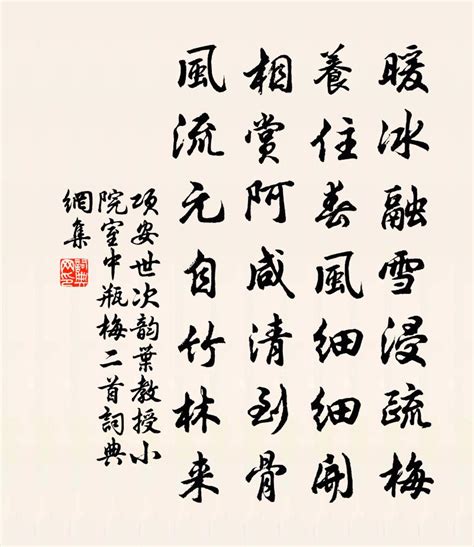 暖冰融雪浸疏梅
養住春風細細開
相賞阿咸清到骨
風流元自竹林来
項安世次韵葉教授小
院室中瓶梅二首詞典
網集